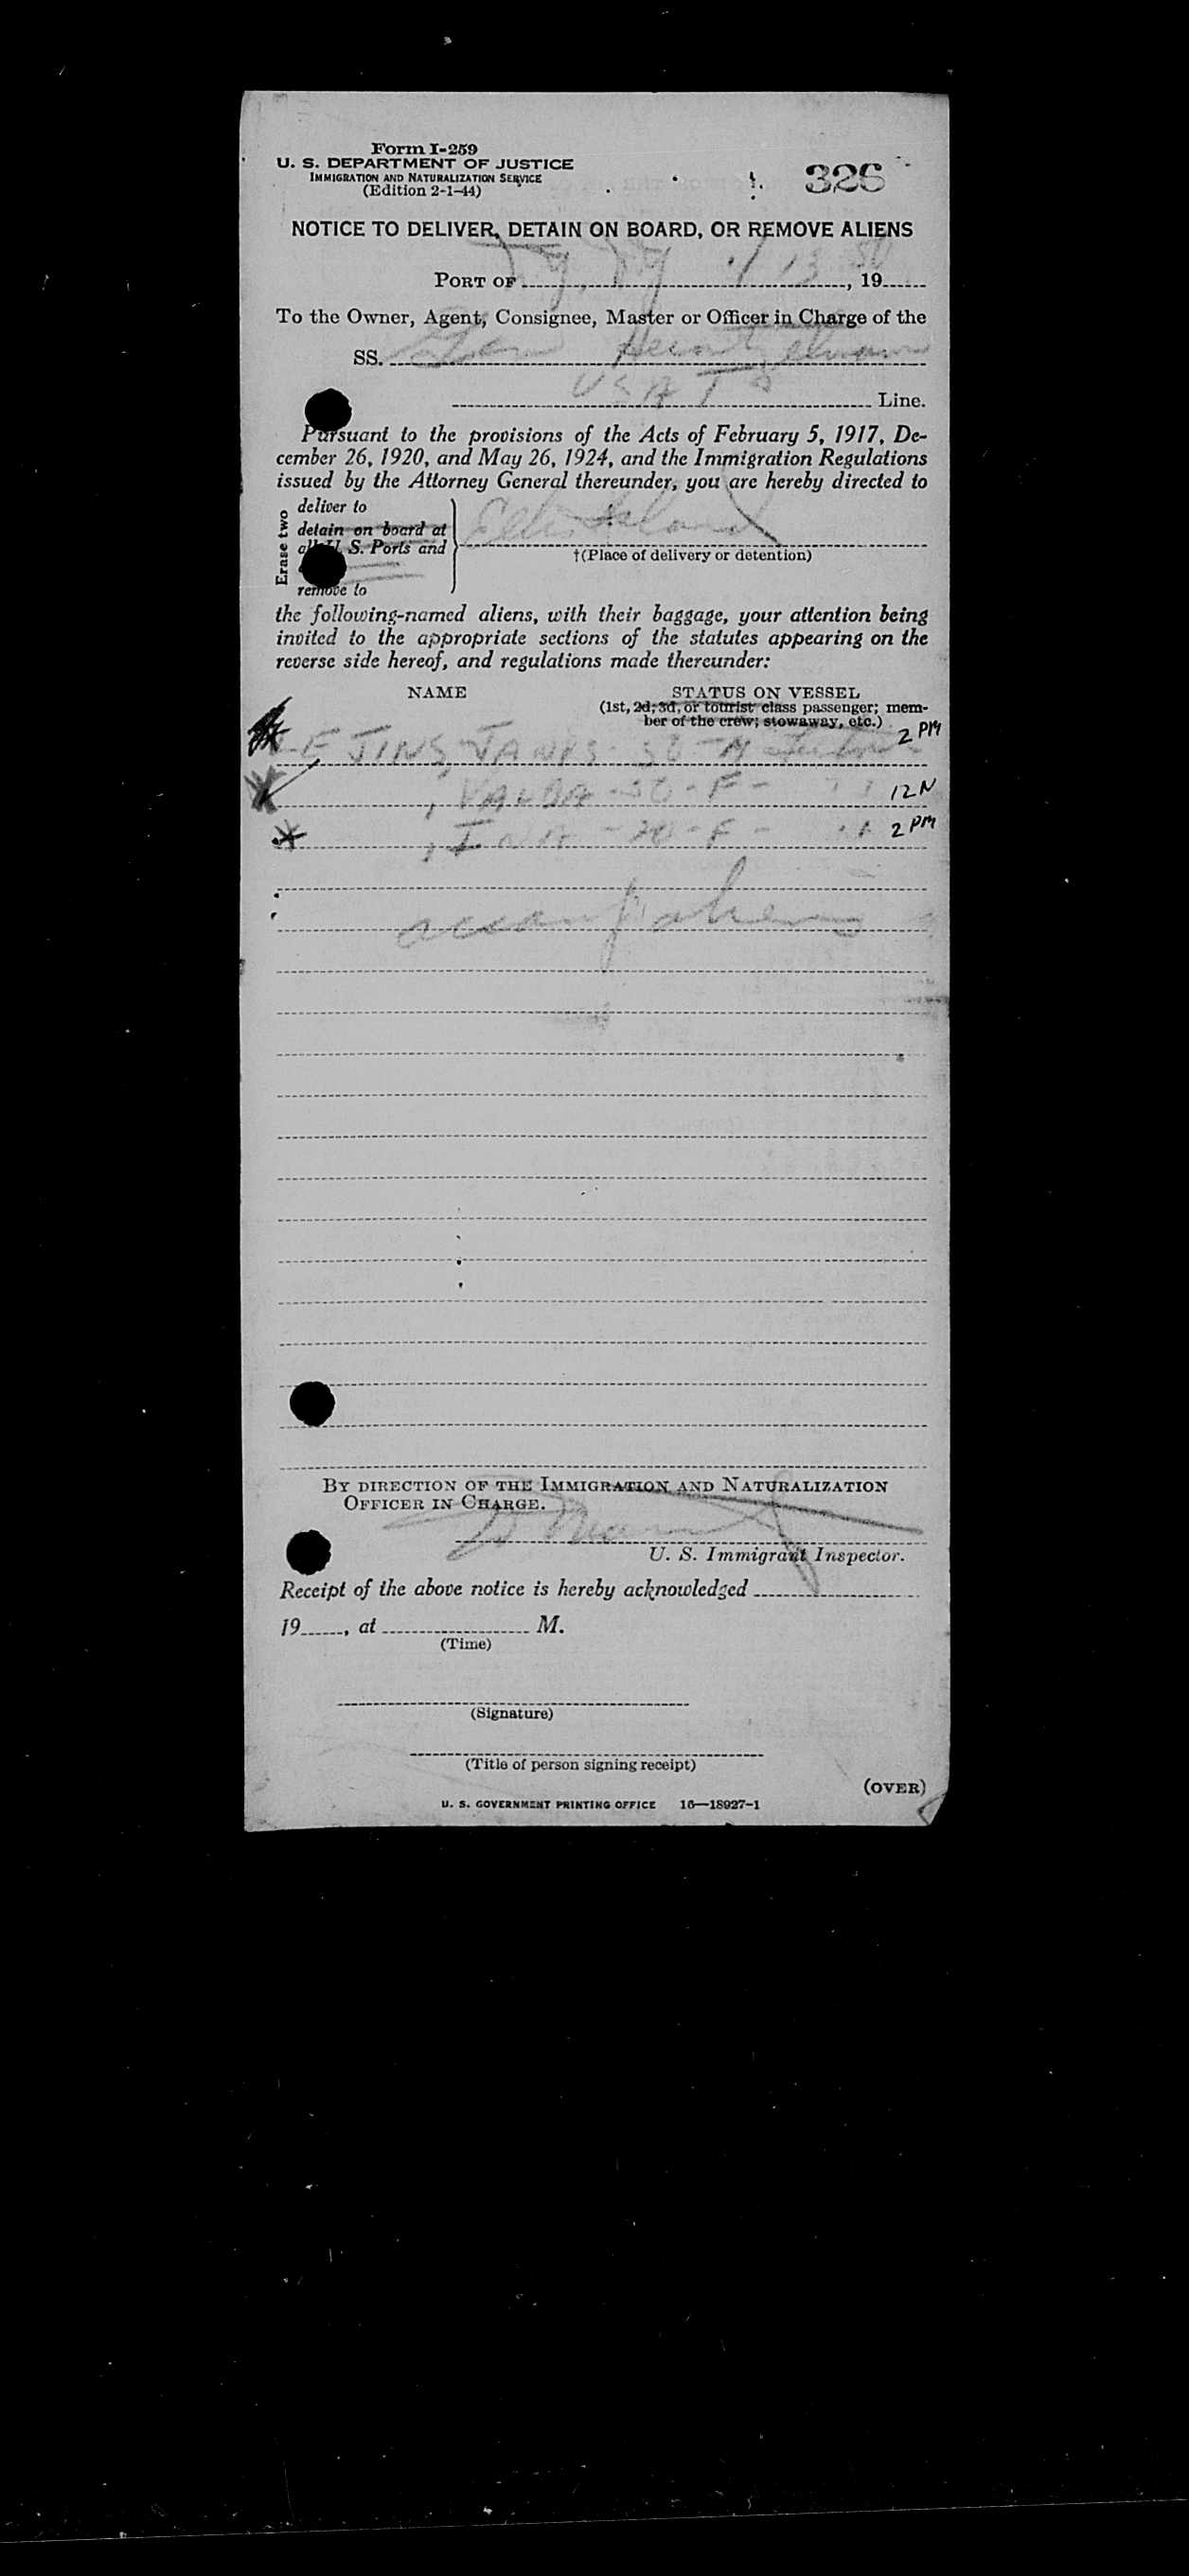 Form I-259
U. S. DEPARTMENT OF JUSTICE
IMMIGRATION AND NATURALIZATION SERVICE
(Edition 2-1-44)
326
NOTICE TO DELIVER, DETAIN ON BOARD, OR REMOVE ALIENS
PORT OF NY, NY 13, 19 50
To the Owner, Agent, Consignee, Master or Officer in Charge of the
SS. Gen Heintzelman
USAT Line.
Pursuant to the provisions of the Acts of February 5, 1917, De-
cember 26, 1920, and May 26, 1924, and the Immigration Regulations
issued by the Attorney General thereunder, you are hereby directed to
Erase two
deliver to
detain on board at
all U. S. Ports and
remove to
Ellis Island
†(Place of delivery or detention)
the following-named aliens, with their baggage, your attention being
invited to the appropriate sections of the statutes appearing on the
reverse side hereof, and regulations made thereunder:
NAME STATUS ON VESSEL
(1st, 2d, 3d, or tourist class passenger; mem-
ber of the crew; stowaway, etc.)
JANIS - M 2 PM
VALDA - F - 12 N
INA - 20 - F - 2 PM
accomp aliens
BY DIRECTION OF THE IMMIGRATION AND NATURALIZATION
OFFICER IN CHARGE.
U. S. Immigrant Inspector.
Receipt of the above notice is hereby acknowledged
19, at M.
(Time)
(Signature)
(Title of person signing receipt)
(OVER)
U. S. GOVERNMENT PRINTING OFFICE 16—18927-1